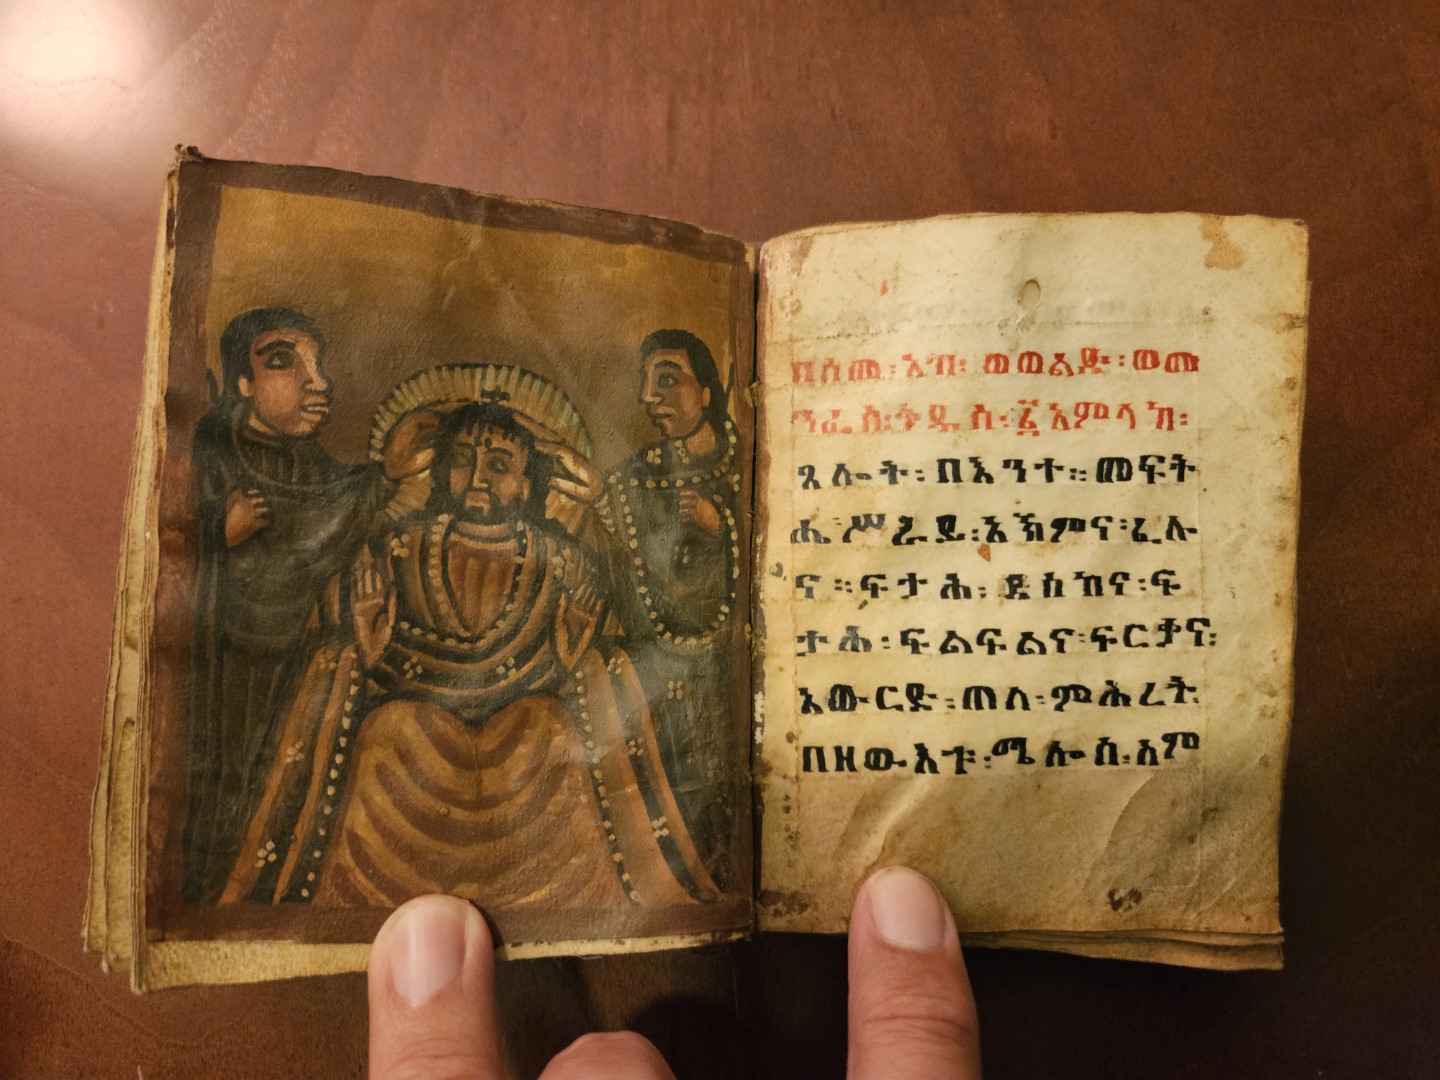 በስመ፡አብ፡ ወወልድ፡ወመ
ንፈ ስ፡ቅዱስ፡፩አምላክ፡
ጸሎት፡በእንተ።መፍት
ሔ ሥራይ፡አኽምና፡ፈሉ
ና።ፍታሕ፡ደስከና፡ፍ
ታሕ፡ፍልፍልና፡ፍርቃና፡
አውርድ፡ጠለ፡ምሕረት
በዘውእቱ፡ሜሎስ፡አም